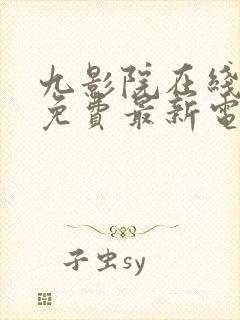 九影院在线
免費最新電
子虫sy